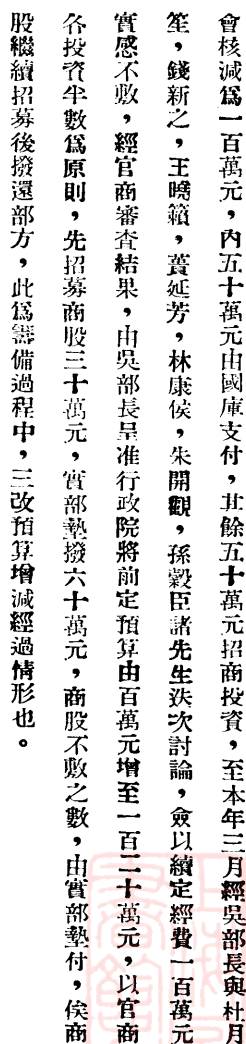 會核減爲一百萬元，內五十萬元由國庫支付，其餘五十萬元招商投資，至本年三月經吳部長與杜月
笙，錢新之，王曉籟，蔓延芳，林康侯，朱開觀，孫穀臣諸先生迭次討論，僉以續定經費一百萬元
實感不敷，經官商審查結果，由吳部長呈准行政院將前定預算由百萬元增至一百二十萬元，以官商
各投資半數爲原則，先招募商股三十萬元，實部墊撥六十萬元，商股不敷之數，由實部墊付，俟商
股繼續招募後撥還部方，此爲籌備過程中，三改預算增減經過情形也。